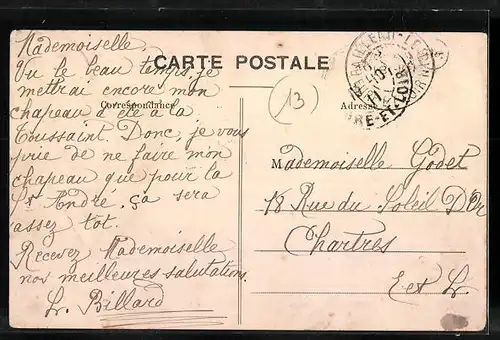 Mademoiselle.
Vu le beau temps, je
mettrai encore mon
chapeau d'été à la
Toussaint. Donc, je vous
prie de ne faire mon
chapeau que pour la
St André, ça sera
assez tot.
Recevez Mademoiselle
nos meilleures salutations.
L. Billard
CARTE POSTALE
Correspondance
Adresse
13
EURE-ET-LOIR
Mademoiselle Godet
18 Rue du Soleil D'Or
Chartres
E et L.